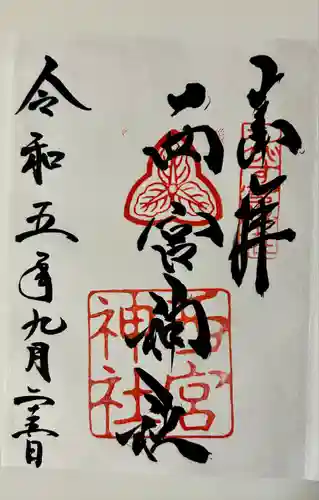 奉拝
西宮神社
西宮神社
令和五年九月二十三日